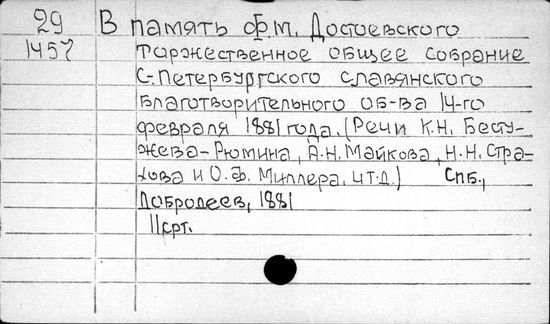 29 В память Ф.М. Достоевского
1457 торжественное общее собрание
С-Петербургского славянского
благотворительного об-ва 14-го
февраля 1881 года. (Речи К.Н. Бесту-
жева-Рюмина, А.Н. Майкова, Н.Н. Стра-
хова и О.Ф. Миллера. и т.д.) Спб.,
Добродеев, 1881